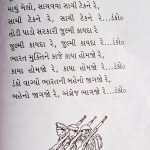 માથું મેલો, સાચવવા સાચી ટેકને રે,
સાચી ટેકને રે, સાચી ટેકને રે...ડંકો૦
તોડી પાડો સરકારી જુલ્મી કાયદા રે
જુલ્મી કાયદા રે, જુલ્મી કાયદા રે...ડંકો૦
ભારત મુક્તિને કાજે કાયા હોમજો રે,
કાયા હોમજો રે, કાયા હોમજો રે...ડંકો૦
ડંકો વાગ્યો ભારતની બહેનો જાગજો રે,
બહેનો જાગજો રે, જાગજો રે...ડંકો૦